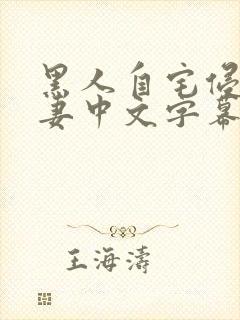 黑人自宅侵
妻中文字幕
王海濤